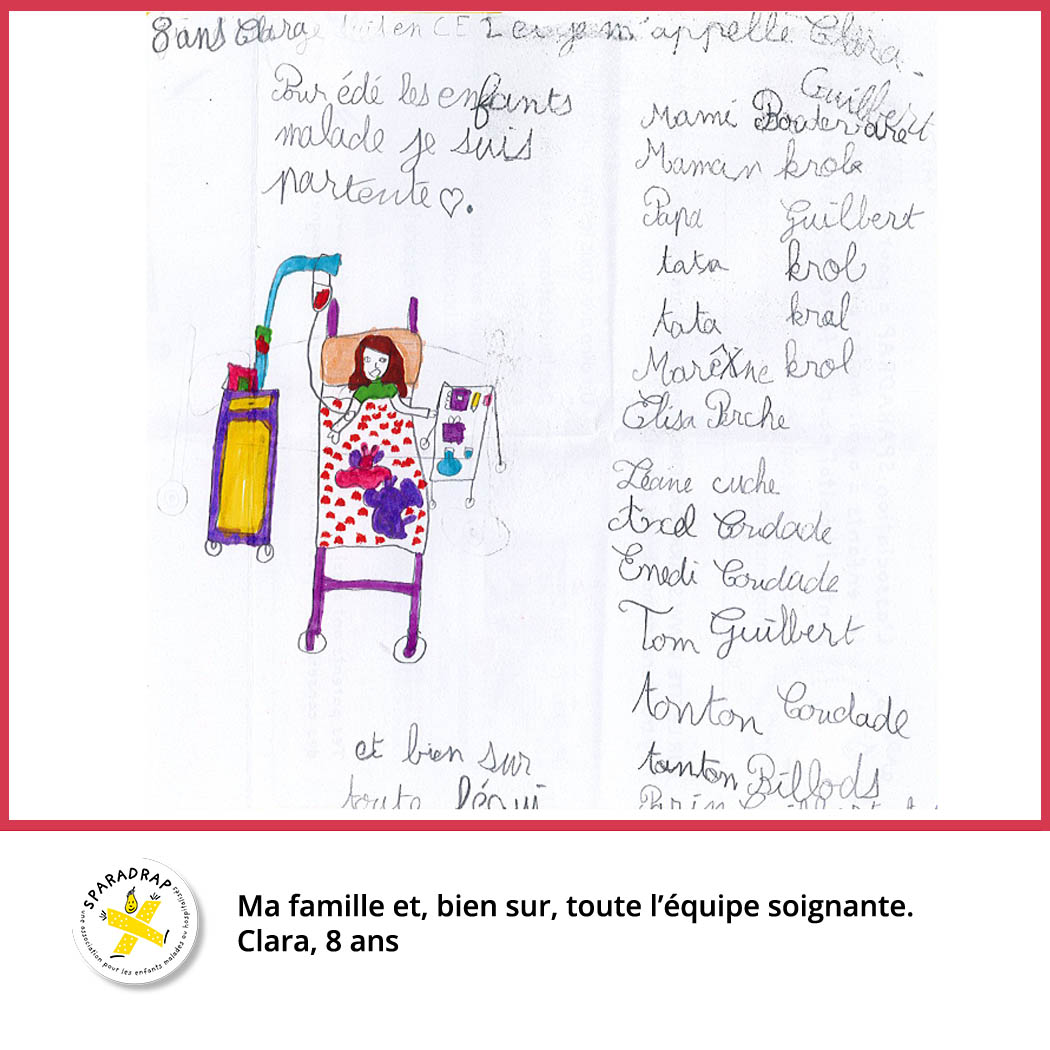 8 ans Clara je suis en CE 2 et je m'appelle Clara
Guilbert
Pour édé les enfants
malade je suis
partente ♡.
Mami
Maman krol
Papa Guilbert
tata krol
tata krol
krol
Elisa Perche
Léane cuche
Axel Coudade
Enedi Coudade
Tom Guilbert
tonton Coudade
tonton Billods
et bien sur
toute l'équi
SPARADRAP
une association pour les enfants malades ou hospitalisés
Ma famille et, bien sur, toute l'équipe soignante.
Clara, 8 ans